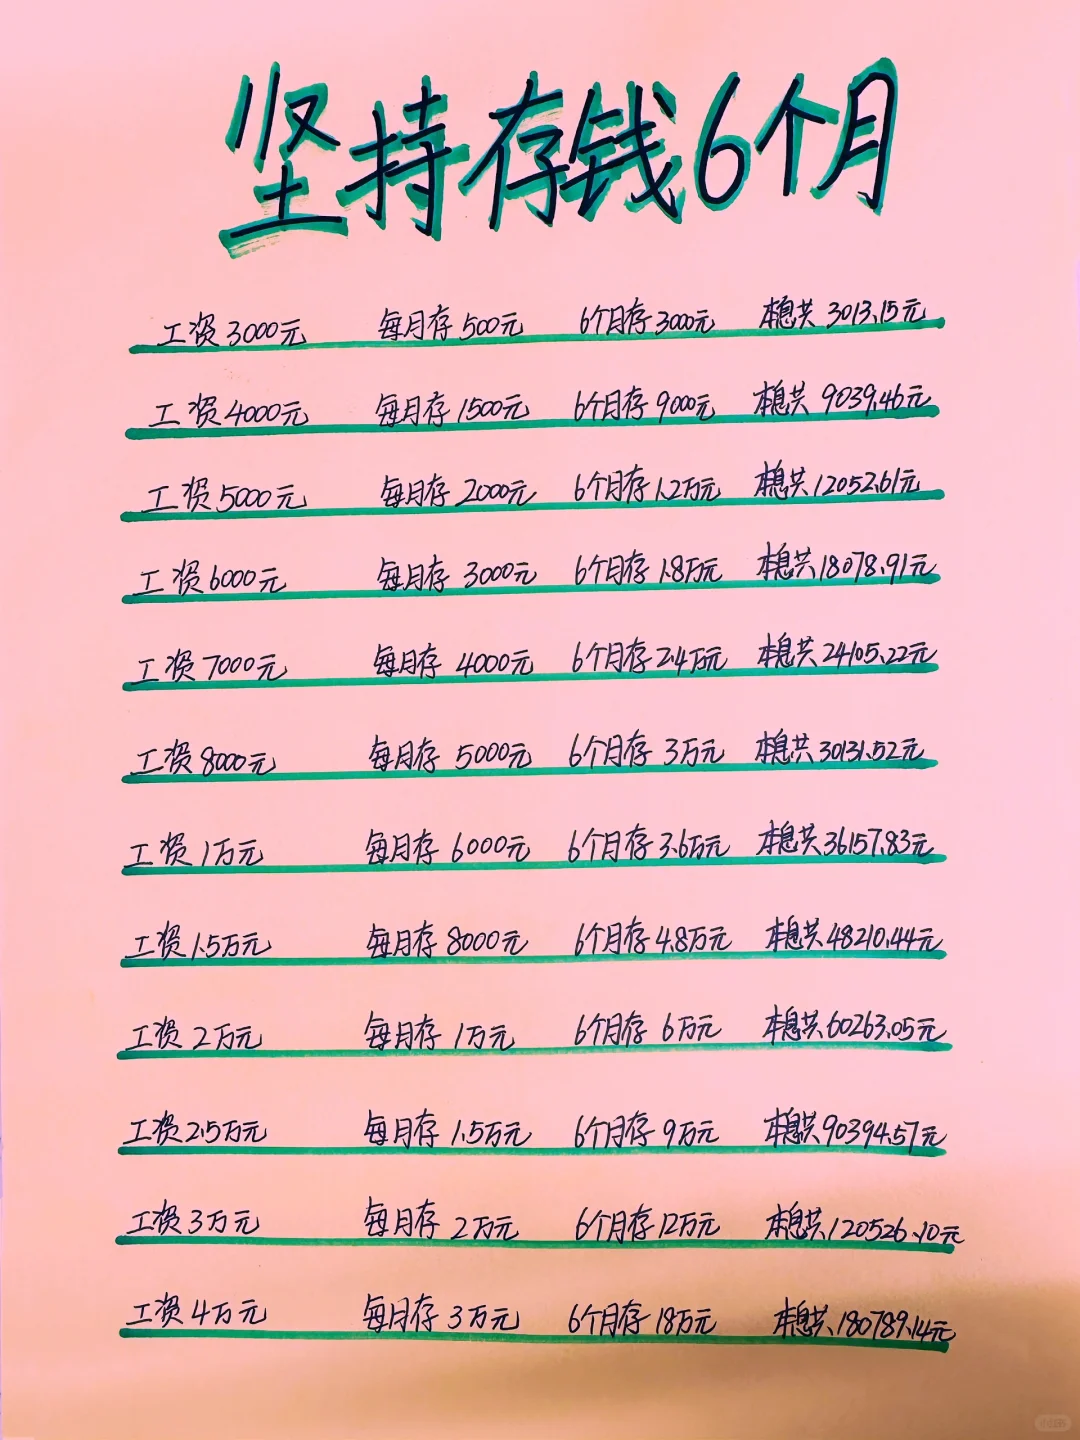 坚持存钱6个月
工资3000元 每月存500元 6个月存3000元 本息共3013.15元
工资4000元 每月存1500元 6个月存9000元 本息共9039.46元
工资5000元 每月存2000元 6个月存1.2万元 本息共12052.61元
工资6000元 每月存3000元 6个月存1.8万元 本息共18078.91元
工资7000元 每月存4000元 6个月存2.4万元 本息共24105.22元
工资8000元 每月存5000元 6个月存3万元 本息共30131.52元
工资1万元 每月存6000元 6个月存3.6万元 本息共36157.83元
工资1.5万元 每月存8000元 6个月存4.8万元 本息共48210.44元
工资2万元 每月存1万元 6个月存6万元 本息共60263.05元
工资2.5万元 每月存1.5万元 6个月存9万元 本息共90394.57元
工资3万元 每月存2万元 6个月存12万元 本息共120526.10元
工资4万元 每月存3万元 6个月存18万元 本息共180789.14元